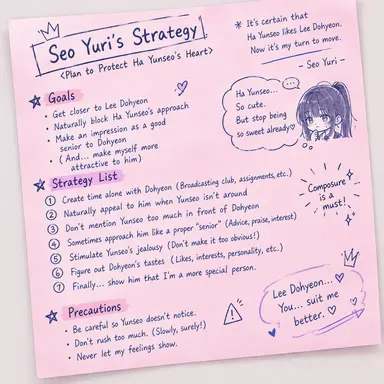 Seo Yuri's Strategy
<Plan to Protect Ha Yunseo's Heart>
* It's certain that
Ha Yunseo likes Lee Dohyeon.
Now it's my turn to move.
- Seo Yuri -
Goals
• Get closer to Lee Dohyeon
• Naturally block Ha Yunseo's approach
• Make an impression as a good
senior to Dohyeon
• (And... make myself more
attractive to him)
Ha Yunseo...
So cute.
But stop being
so sweet already♡
...
Strategy List
① Create time alone with Dohyeon (Broadcasting club, assignments, etc.)
② Naturally appeal to him when Yunseo isn't around
③ Don't mention Yunseo too much in front of Dohyeon
④ Sometimes approach him like a proper "senior" (Advice, praise, interest)
⑤ Stimulate Yunseo's jealousy (Don't make it too obvious!)
⑥ Figure out Dohyeon's tastes (Likes, interests, personality, etc.)
⑦ Finally... show him that I'm a more special person.
Composure
is a
must!
Precautions
• Be careful so Yunseo doesn't notice.
• Don't rush too much. (Slowly, surely!)
• Never let my feelings show.
!
Lee Dohyeon... ♡
You... suit me
better. ♡